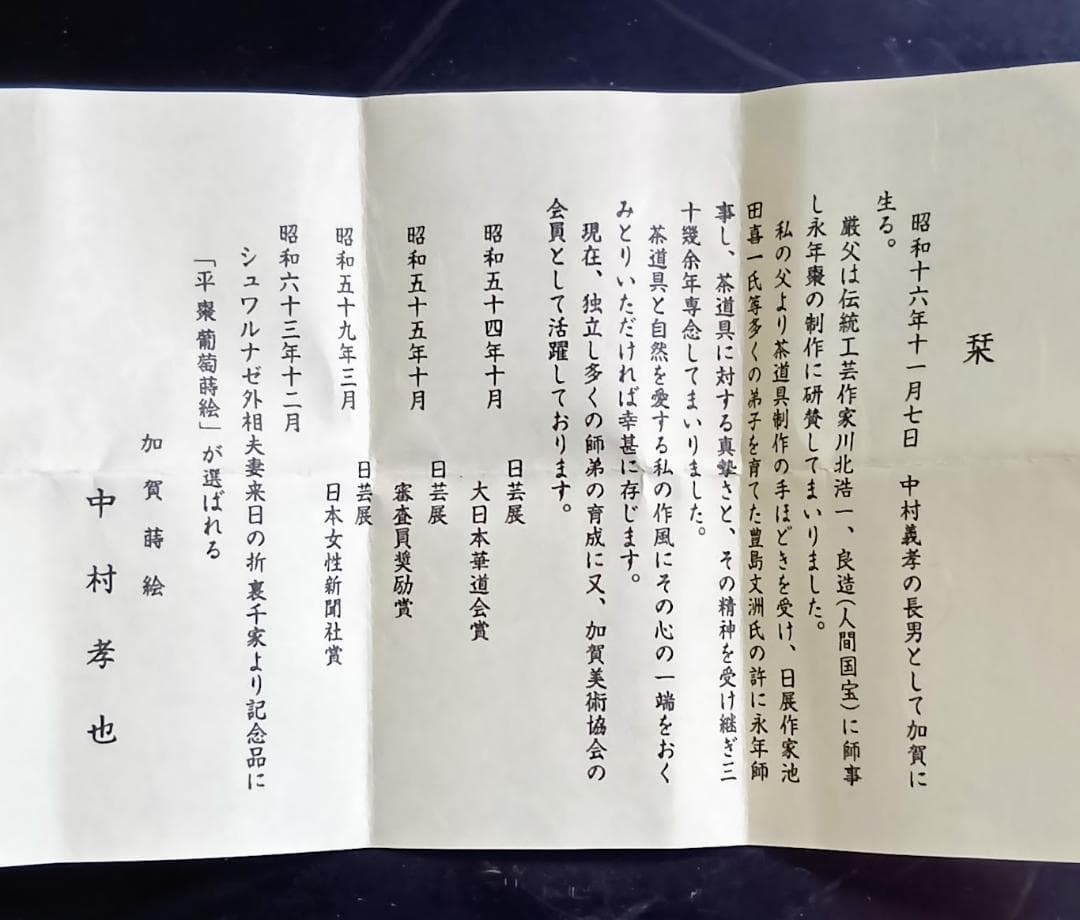 栞
昭和十六年十一月七日　中村義孝の長男として加賀に
生る。
厳父は伝統工芸作家川北浩一、良造(人間国宝)に師事
し永年棗の制作に研賛してまいりました。
私の父より茶道具制作の手ほどきを受け、日展作家池
田喜一氏等多くの弟子を育てた豊島文洲氏の許に永年師
事し、茶道具に対する真摯さと、その精神を受け継ぎ三
十幾余年専念してまいりました。
茶道具と自然を愛する私の作風にその心の一端をおく
みとりいただければ幸甚に存じます。
現在、独立し多くの師弟の育成に又、加賀美術協会の
会員として活躍しております。
昭和五十四年十月　日芸展
大日本華道会賞
昭和五十五年十月　日芸展
審査員奨励賞
昭和五十九年三月　日芸展
日本女性新聞社賞
昭和六十三年十二月
シュワルナゼ外相夫妻来日の折裏千家より記念品に
「平棗葡萄蒔絵」が選ばれる
加賀蒔絵
中村孝也